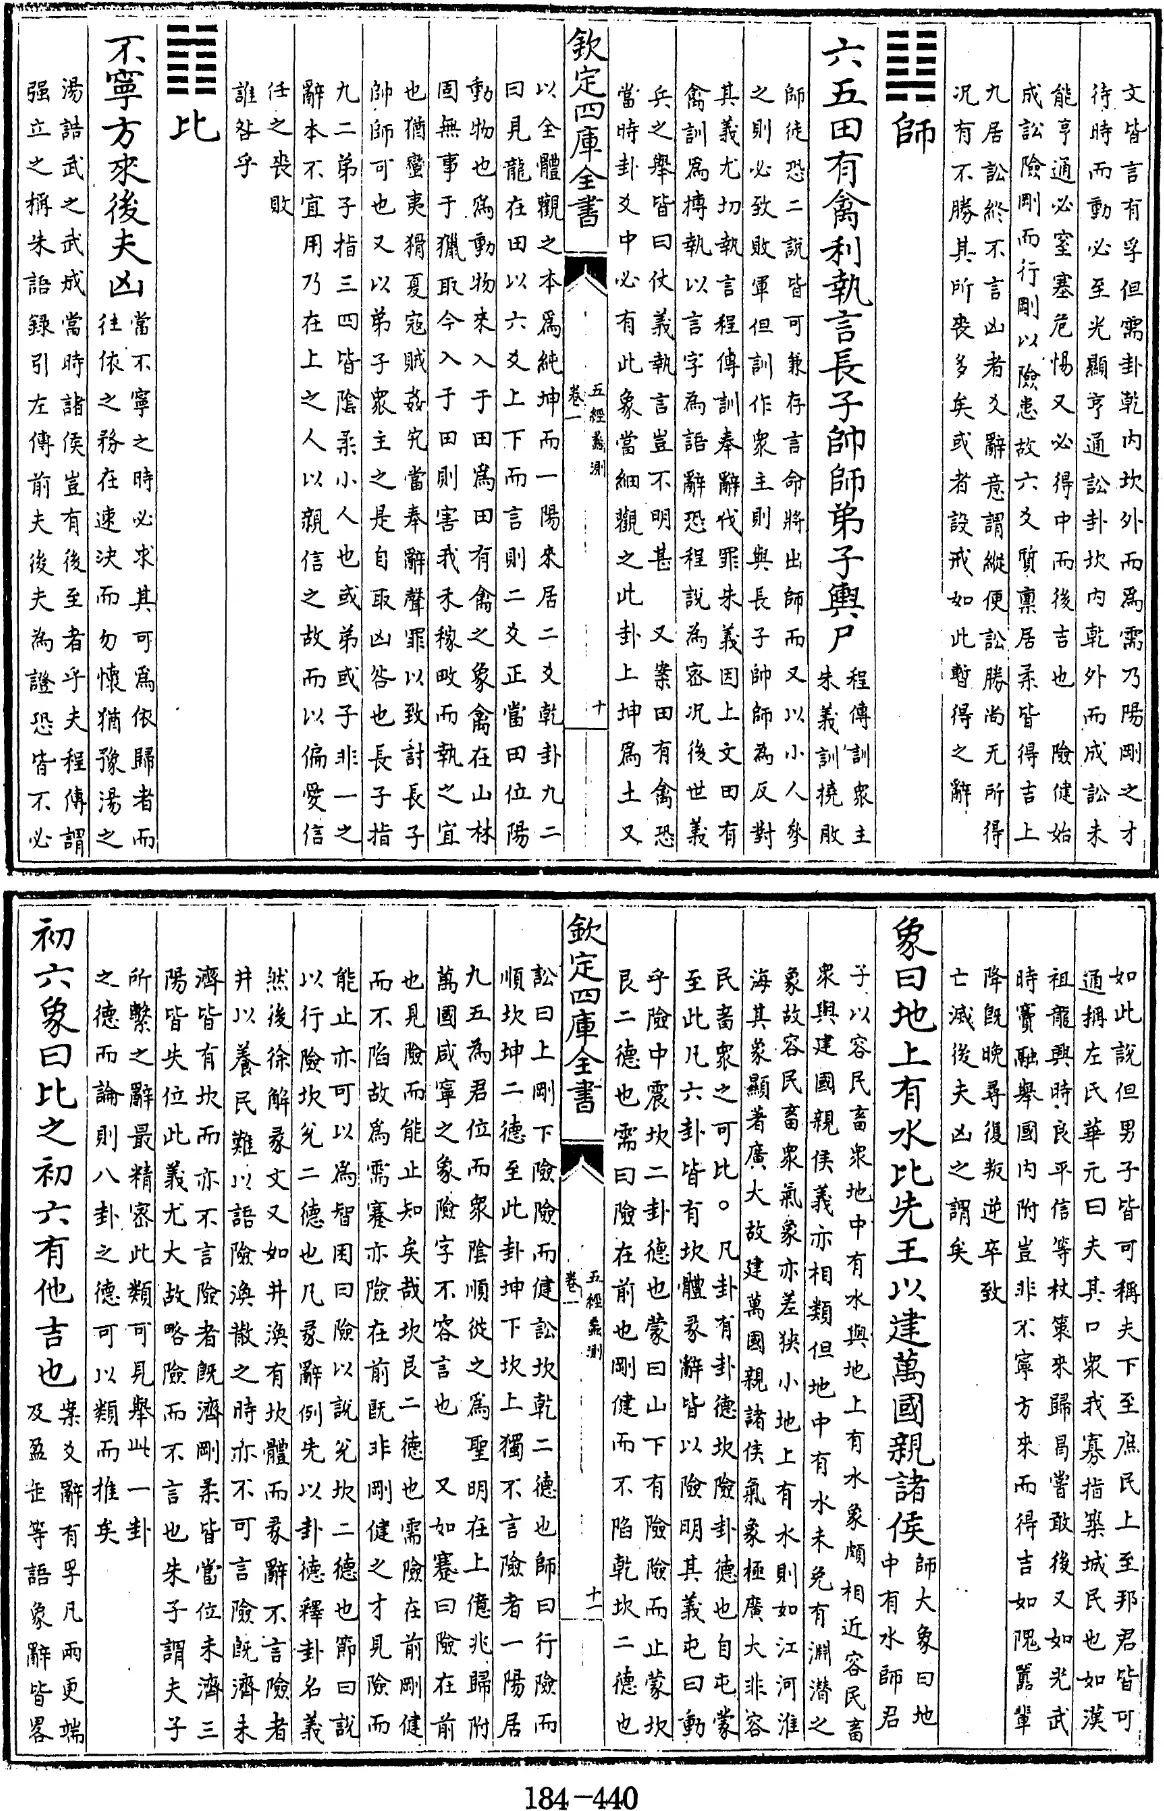 文皆言有孚但需卦乾内坎外而爲需乃陽剛之才
待時而動必至光顯亨通訟卦坎内乾外而成訟未
能亨通必窒塞危惕又必得中而後吉也　險健始
成訟險剛而行剛以險患故六爻質稟居柔皆得吉上
九居訟終不言凶者爻辭意謂縱便訟勝尚无所得
况有不勝其所喪多矣或者設戒如此暫得之辭
䷆師
六五田有禽利執言長子帥師弟子輿尸
程傳訓衆主
朱義訓撓敗
師徒恐二說皆可兼存言命將出師而又以小人參
之則必致敗軍但訓作衆主則與長子帥師為反對
其義尤切執言程傳訓奉辭伐罪朱義因上文田有
禽訓爲搏執以言字為語辭恐程說為密况後世義
兵之舉皆曰仗義執言豈不明甚　又案田有禽恐
當時卦爻中必有此象當細觀之此卦上坤爲土又
欽定四庫全書
五經蠡測
卷一
十
以全體觀之本爲純坤而一陽來居二爻乾卦九二
曰見龍在田以六爻上下而言則二爻正當田位陽
動物也爲動物來入于田爲田有禽之象禽在山林
固無事于獵取今入于田則害我禾稼畋而執之宜
也猶蠻夷猾夏寇賊姦宄當奉辭聲罪以致討長子
帥師可也又以弟子衆主之是自取凶咎也長子指
九二弟子指三四皆陰柔小人也或弟或子非一之
辭本不宜用乃在上之人以親信之故而以偏愛信
任之喪敗
誰咎乎
䷇比
不寧方來後夫凶
當不寧之時必求其可爲依歸者而
往依之務在速決而勿懷猶豫湯之
湯誥武之武成當時諸侯豈有後至者乎夫程傳謂
强立之稱朱語録引左傳前夫後夫為證恐皆不必
如此說但男子皆可稱夫下至庶民上至邦君皆可
通稱左氏華元曰夫其口衆我寡指築城民也如漢
祖龍興時良平信等杖策來歸昌嘗敢後又如光武
時竇融舉國内附豈非不寧方來而得吉如隗囂輩
降旣晩尋復叛逆卒致
亡滅後夫凶之謂矣
象曰地上有水比先王以建萬國親諸侯
師大象曰地
中有水師君
子以容民畜衆地中有水與地上有水象頗相近容民畜
衆與建國親侯義亦相類但地中有水未免有淵潛之
象故容民畜衆氣象亦差狹小地上有水則如江河淮
海其象顯著廣大故建萬國親諸侯氣象極廣大非容
民畜衆之可比○凡卦有卦德坎險卦德也自屯蒙
至此凡六卦皆有坎體彖辭皆以險明其義屯曰動
乎險中震坎二卦德也蒙曰山下有險險而止蒙坎
艮二德也需曰險在前也剛健而不陷乾坎二德也
欽定四庫全書
五經蠡測
卷一
十一
訟曰上剛下險險而健訟坎乾二德也師曰行險而
順坎坤二德至此卦坤下坎上獨不言險者一陽居
九五為君位而衆陰順從之爲聖明在上億兆歸附
萬國咸寧之象險字不容言也　又如蹇曰險在前
也見險而能止知矣哉坎艮二德也需險在前剛健
而不陷故爲需蹇亦險在前旣非剛健之才見險而
能止亦可以爲智困曰險以說兌坎二德也節曰說
以行險坎兌二德也凡彖辭例先以卦德釋卦名義
然後徐解彖文又如井渙有坎體而彖辭不言險者
井以養民難以語險渙散之時亦不可言險旣濟未
濟皆有坎而亦不言險者旣濟剛柔皆當位未濟三
陽皆失位此義尤大故略險而不言也朱子謂夫子
所繫之辭最精密此類可見舉此一卦
之德而論則八卦之德可以類而推矣
初六象曰比之初六有他吉也
案爻辭有孚凡兩更端
及盈缶等語象辭皆畧
184-440